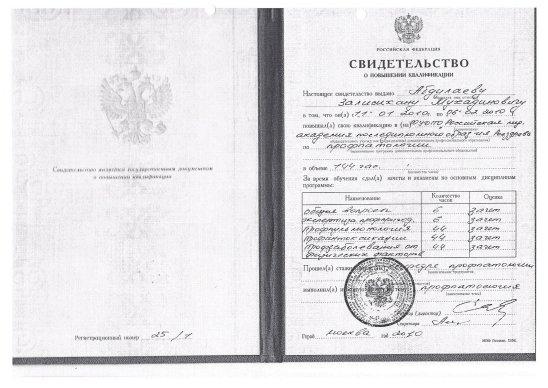 Свидетельство является государственным документом
о повышении квалификации
Регистрационный номер 25/1
РОССИЙСКАЯ ФЕДЕРАЦИЯ
СВИДЕТЕЛЬСТВО
О ПОВЫШЕНИИ КВАЛИФИКАЦИИ
Настоящее свидетельство выдано Абдулаеву
Залимхану Мухадиновичу
в том, что он(а) с 11.01.2010 по 06.02.2010 г.
повысил(а) свою квалификацию в (на) Российская мед.
академия последипломного образ-ия Росздрава
по профпатологии
в объеме 144 час.
За время обучения сдал(а) зачеты и экзамены по основным дисциплинам
программы:
Наименование Количество часов Оценка
общие вопросы 6 зачет
экспертиза профпригод. 6 зачет
Профпульмонология 44 зачет
Профинтоксикации 44 зачет
Профзаболевания от 44 зачет
физических факторов
Прошел(а) стажировку кафедре профпатологии
выполнил(а) профпатология
Секретарь
Город Москва год 2010